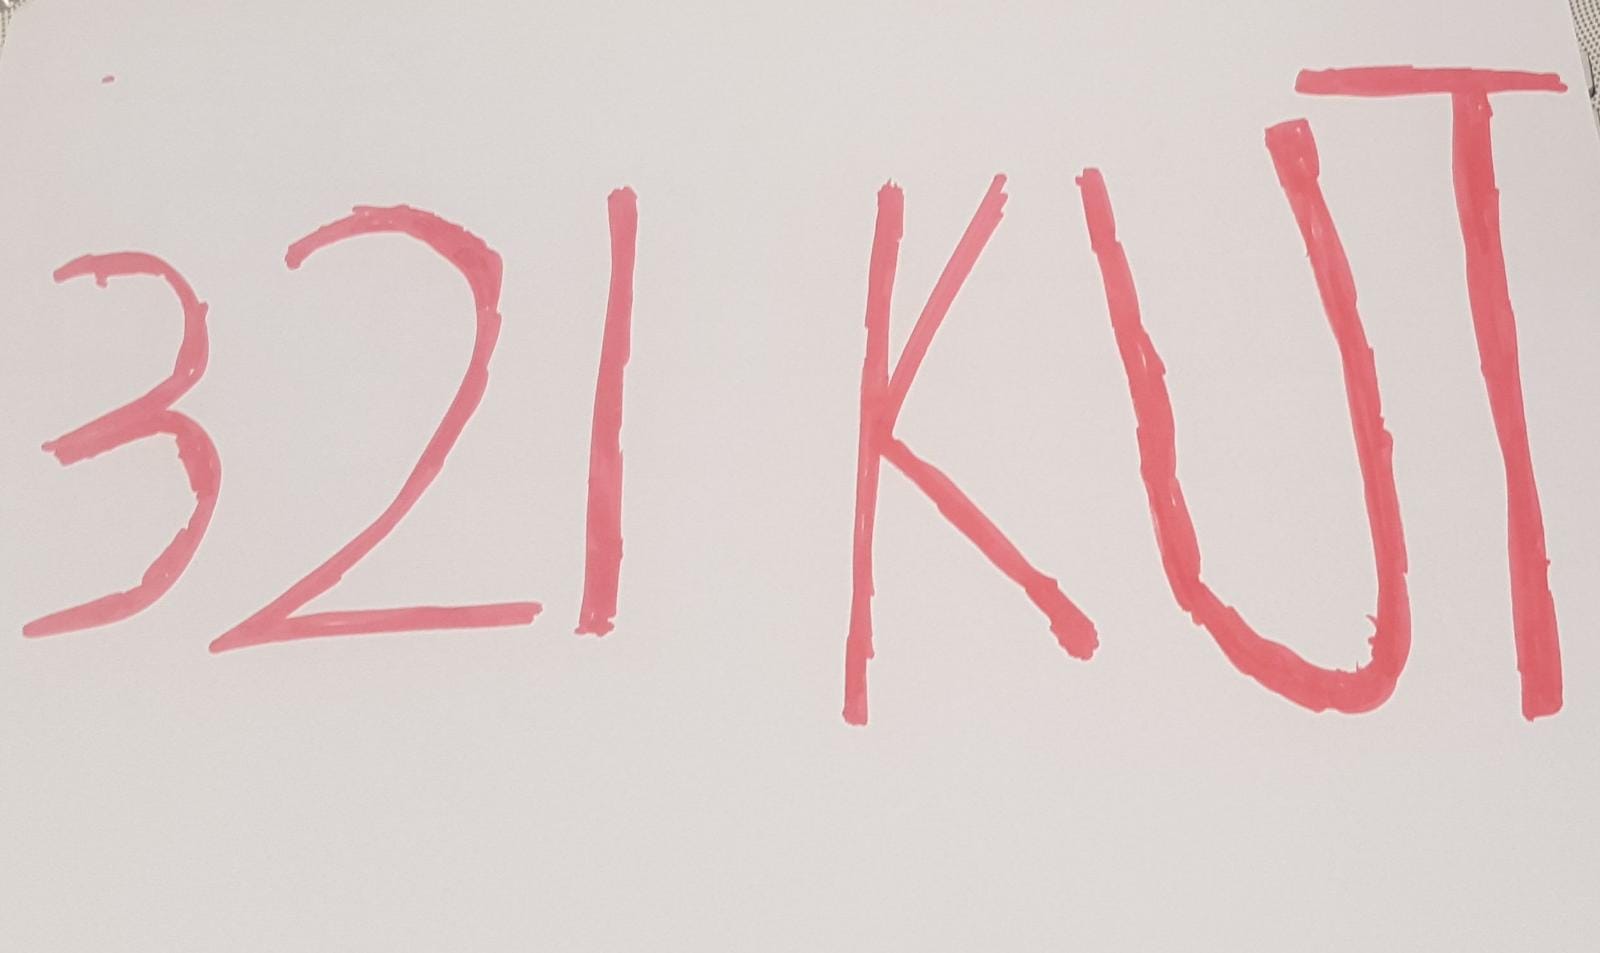 321 KUT